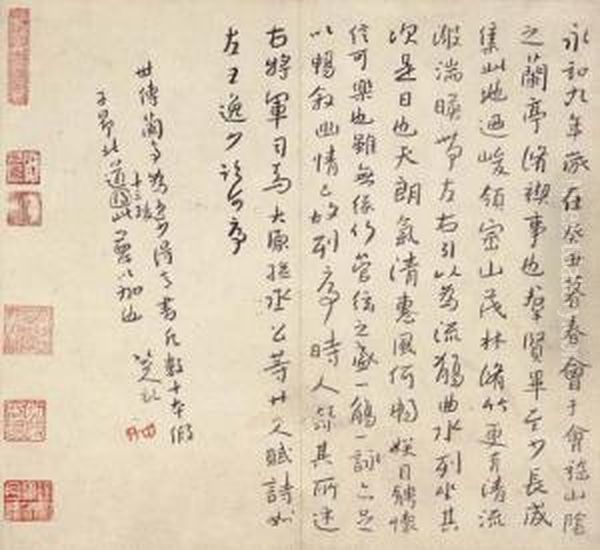 永和九年歲在癸丑暮春會于會稽山陰
之蘭亭脩禊事也群賢畢至少長咸
集此地迺峻領崇山茂林脩竹更有清流
激湍暎帶左右引以為流觴曲水列坐其
次是日也天朗氣清惠風和暢娛目騁懷
信可樂也雖無絲竹管絃之盛一觴一詠亦足
以暢敘幽情已故列序時人錄其所述
右將軍司馬太原孫丞公等廿人賦詩如
左王逸少序
世傳蘭亭為逸少得意書凡數十本
十三跋
子昂也